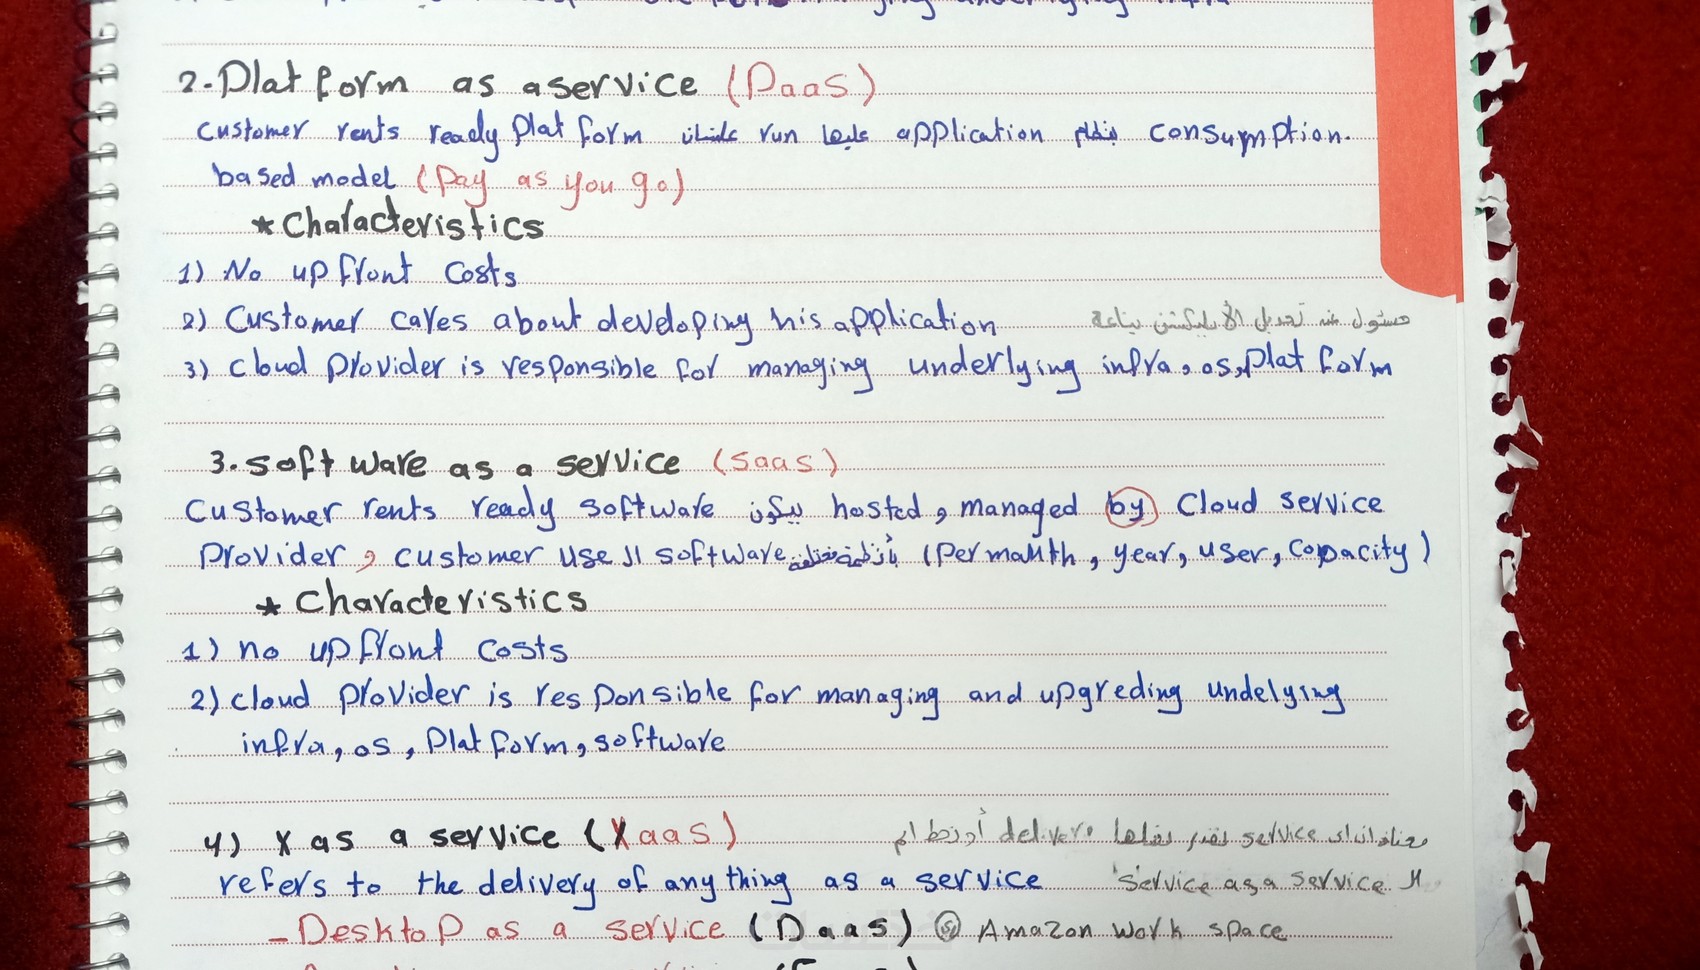 managing underlying infra
2. Platform as a service (PaaS)
Customer rents ready platform علشان run عليها application بنظام consumption.
based model (Pay as you go)
* Characteristics
1) No upfront costs
2) Customer cares about developing his application مسئول عن تعديل الأبليكشن بتاعه
3) Cloud provider is responsible for managing underlying infra, os, platform
3. software as a service (saas)
Customer rents ready software بيكون hosted, managed by Cloud service
provider, customer use ال software بأنظمة مختلفة (Per month, year, user, capacity)
* Characteristics
1) no upfront costs
2) cloud provider is responsible for managing and upgreding undelying
infra, os, platform, software
4) X as a service (XaaS) معناه ان اى service نقدر نخليها delivere أو نحط ال
refers to the delivery of anything as a service ال service as a service
- Desktop as a service (DaaS) Amazon work space